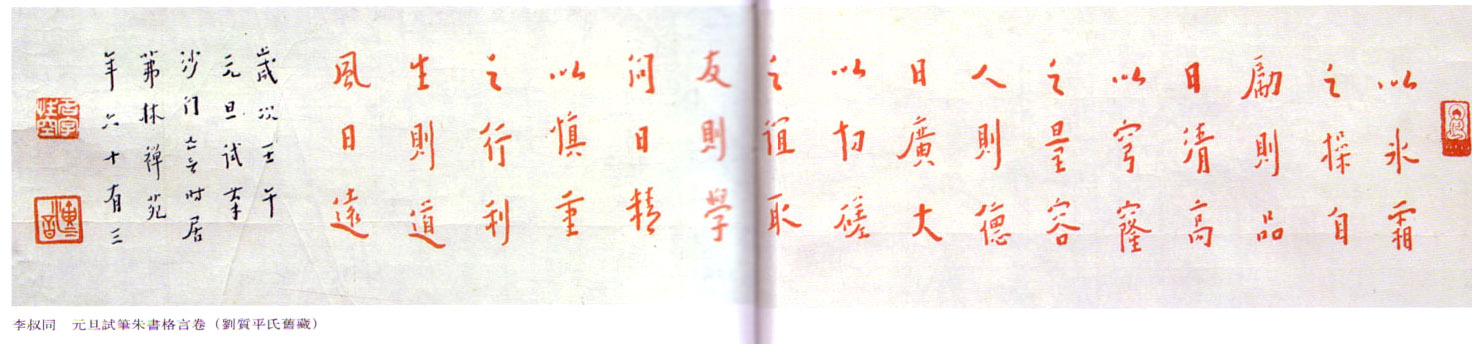 以氷霜
之操自
勵則品
日清高
以穹窿
之量容
人則德
日廣大
以切磋
之誼取
友則學
問日精
以慎重
之行利
生則道
風日遠
歲次壬午
元旦試筆
沙門亡言時居
茀林禪苑
年六十有三
演音
李叔同 元旦試筆朱書格言卷（劉質平氏舊藏）